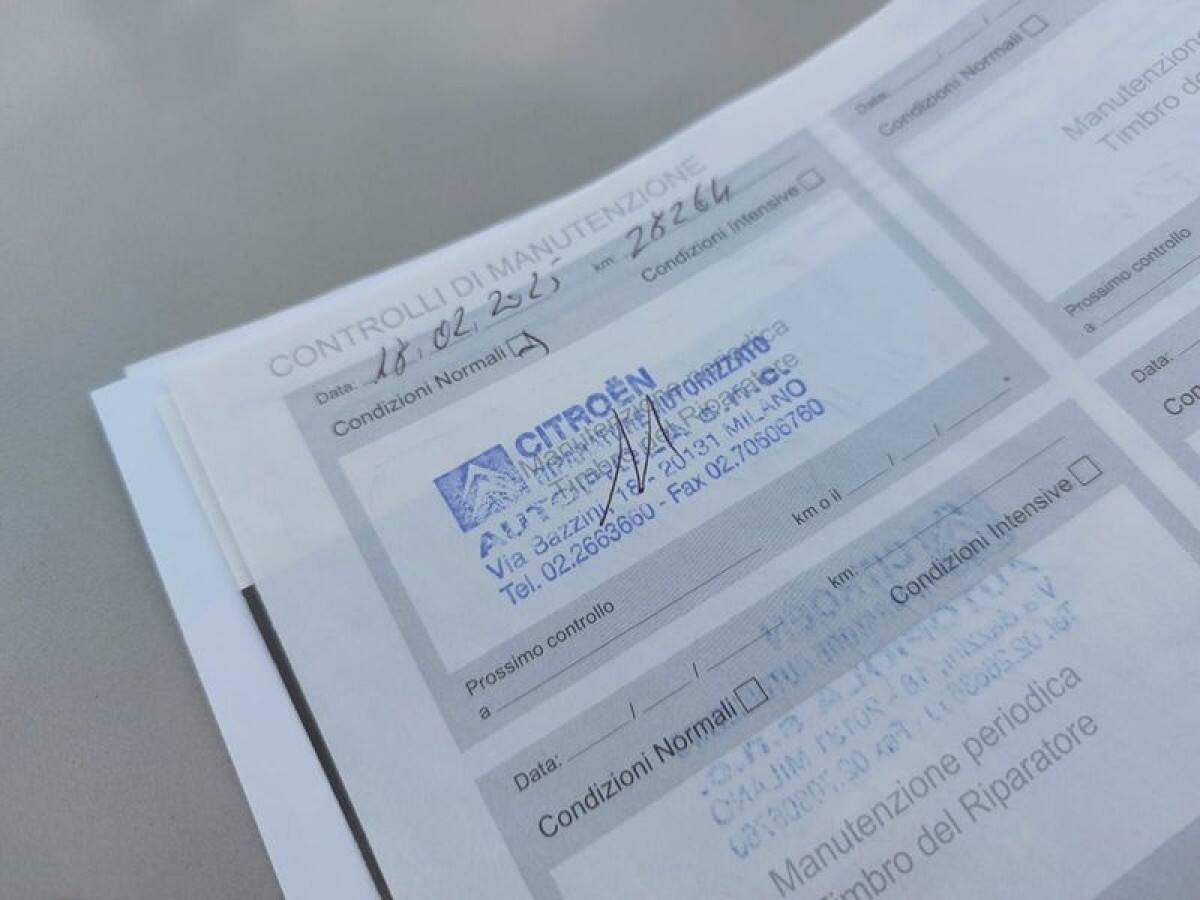 CONTROLLI DI MANUTENZIONE
Data: 18.02.2025 km: 28264
Condizioni Normali Condizioni Intensive
Manutenzione periodica
Timbro del Riparatore
CITROËN
AUTORIZZATO
S.n.c.
Via Bazzini, 18 - 20131 MILANO
Tel. 02.2663660 - Fax 02.70606760
Prossimo controllo
a km o il / /
Data: / / km:
Condizioni Normali Condizioni Intensive
Manutenzione periodica
Timbro del Riparatore
Data: / /
Condizioni Normali
Manutenzione
Timbro
Prossimo controllo
a
Data: